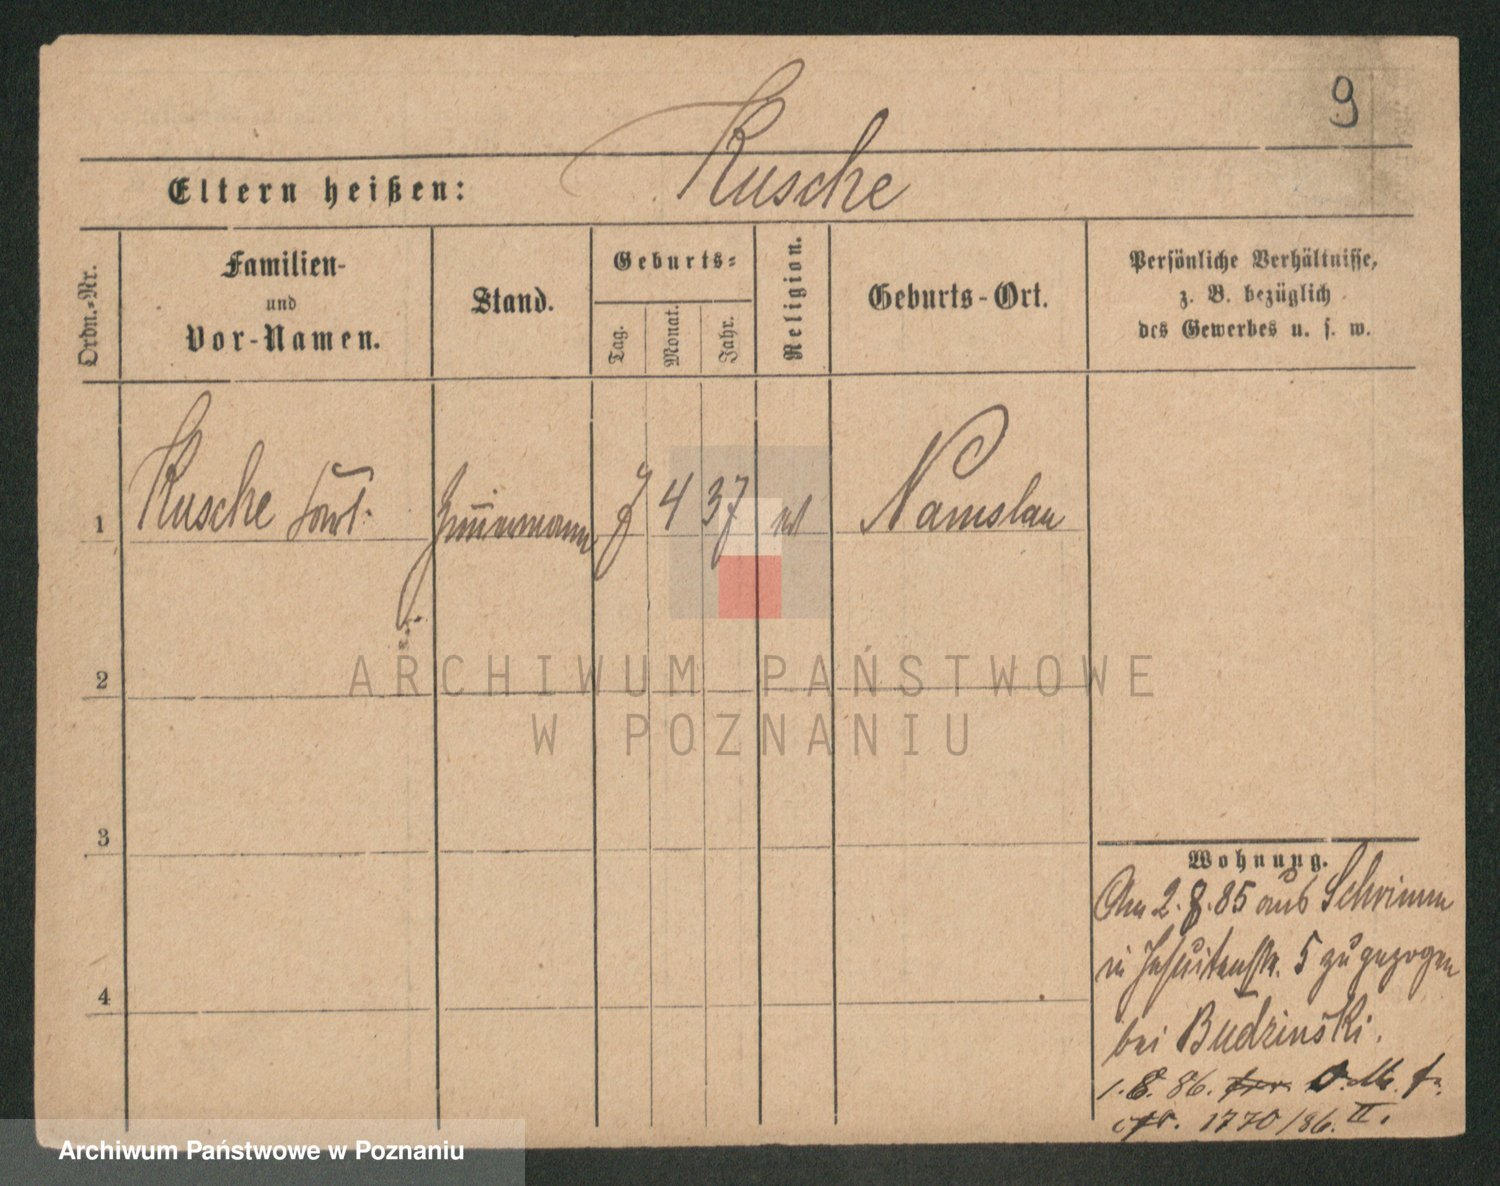 9
Rusche
Eltern heißen:
Ordn.-Nr.
Familien-
und
Vor-Namen.
Stand.
Geburts-
Tag.
Monat.
Jahr.
Religion.
Geburts-Ort.
Persönliche Verhältnisse,
z. B. bezüglich
des Gewerbes u. s. w.
1 Rusche Zimmermann 7 4 37 Namslau
2
3
4
ARCHIWUM PAŃSTWOWE
W POZNANIU
Wohnung.
Am 2. 8. 85 aus Schrimm
in Jesuitenstr. 5 zugezogen
bei Budzinski.
1. 8. 86.
1770/86. II.
Archiwum Państwowe w Poznaniu